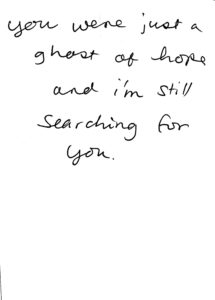 you were just a
ghost of hope
and i'm still
searching for
you.